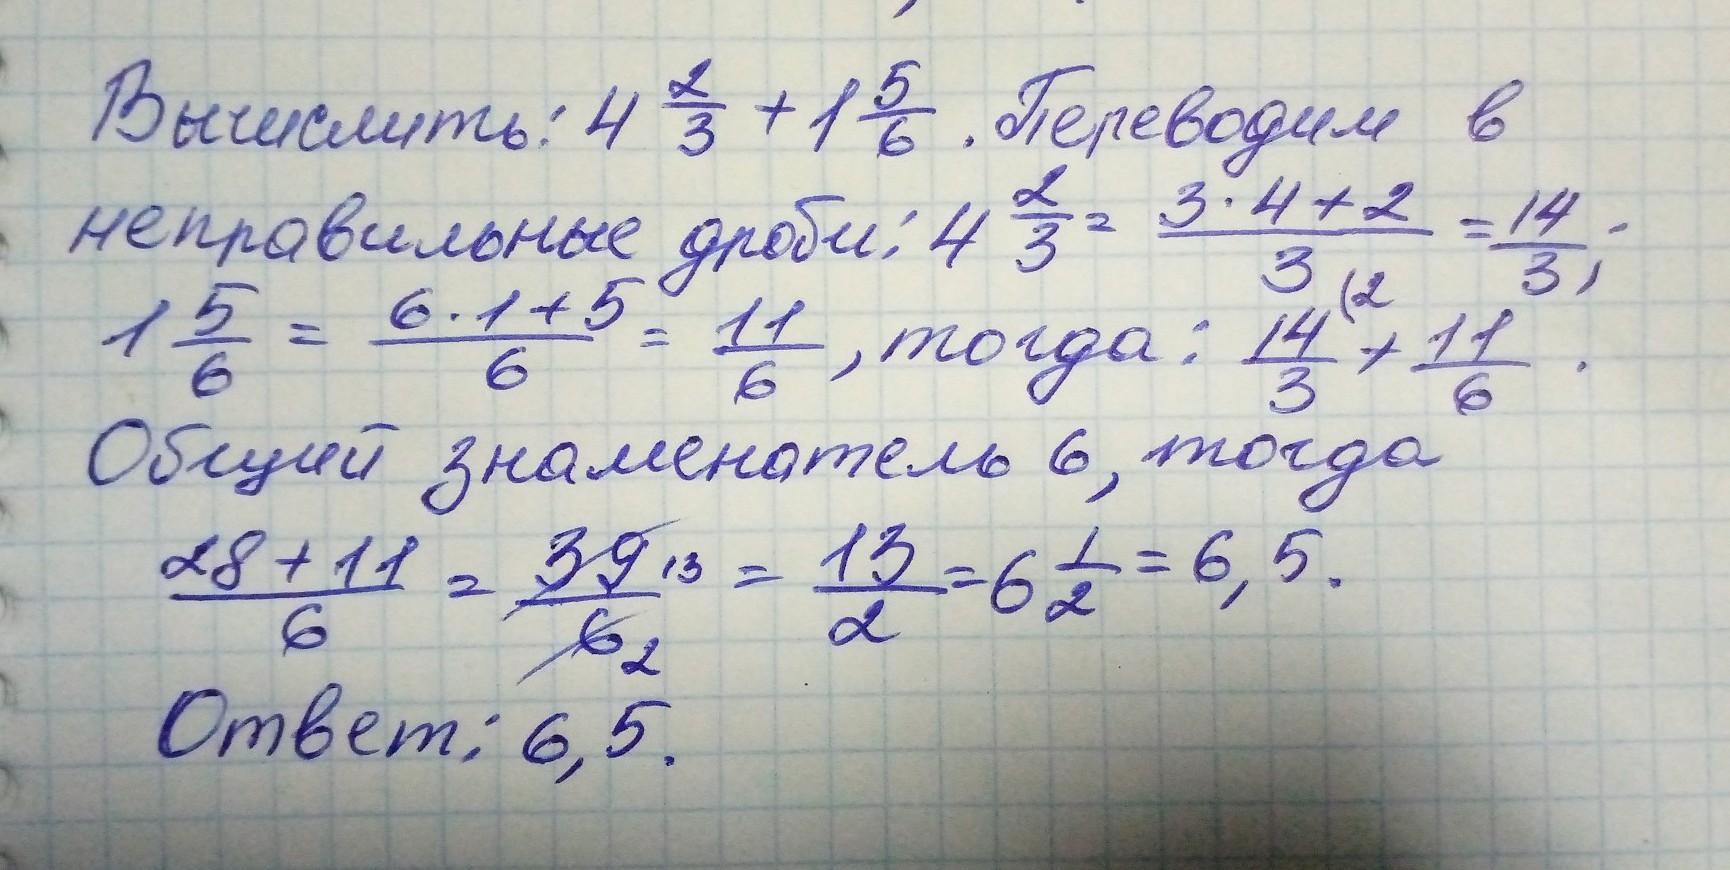 Вычислить: 4 2/3 + 1 5/6. Переводим в
неправильные дроби: 4 2/3 = (3·4+2)/3 = 14/3;
1 5/6 = (6·1+5)/6 = 11/6, тогда: 14/3 (2 + 11/6.
Общий знаменатель 6, тогда
(28+11)/6 = 39 13/6 2 = 13/2 = 6 1/2 = 6,5.
Ответ: 6,5.